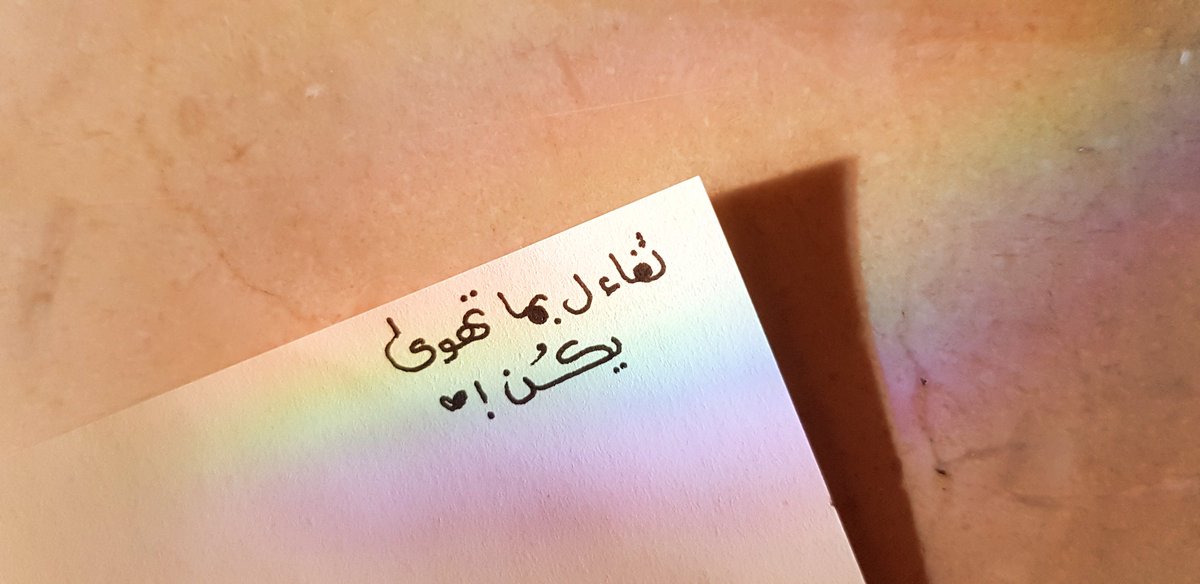 تفاءل بما تهوى
يكُن !♥